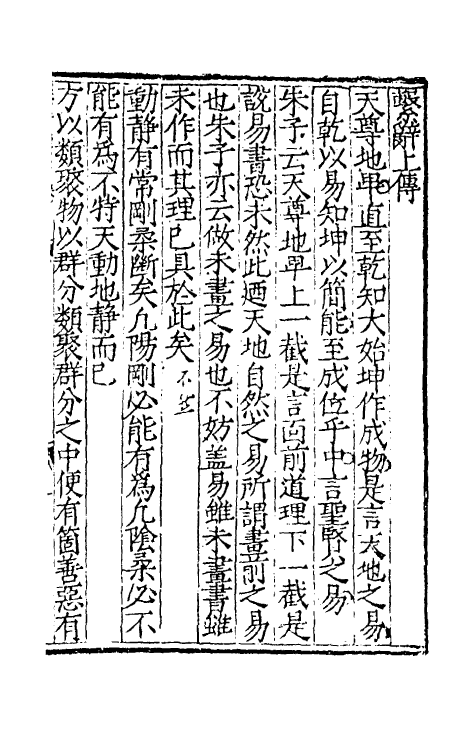 繫辭上傳
天尊地卑直至乾知大始坤作成物是言天地之易
自乾以易知坤以簡能至成位乎中言聖賢之易
朱子云天尊地卑上一截是言面前道理下一截是
說易書恐未然此廼天地自然之易所謂畫前之易
也朱子亦云做未畫之易也不妨盖易雖未畫書雖
未作而其理已具於此矣
動靜有常剛柔斷矣凢陽剛必能有爲凢陰柔必不
能有爲不特天動地静而已
方以類聚物以群分類聚群分之中便有箇善惡有